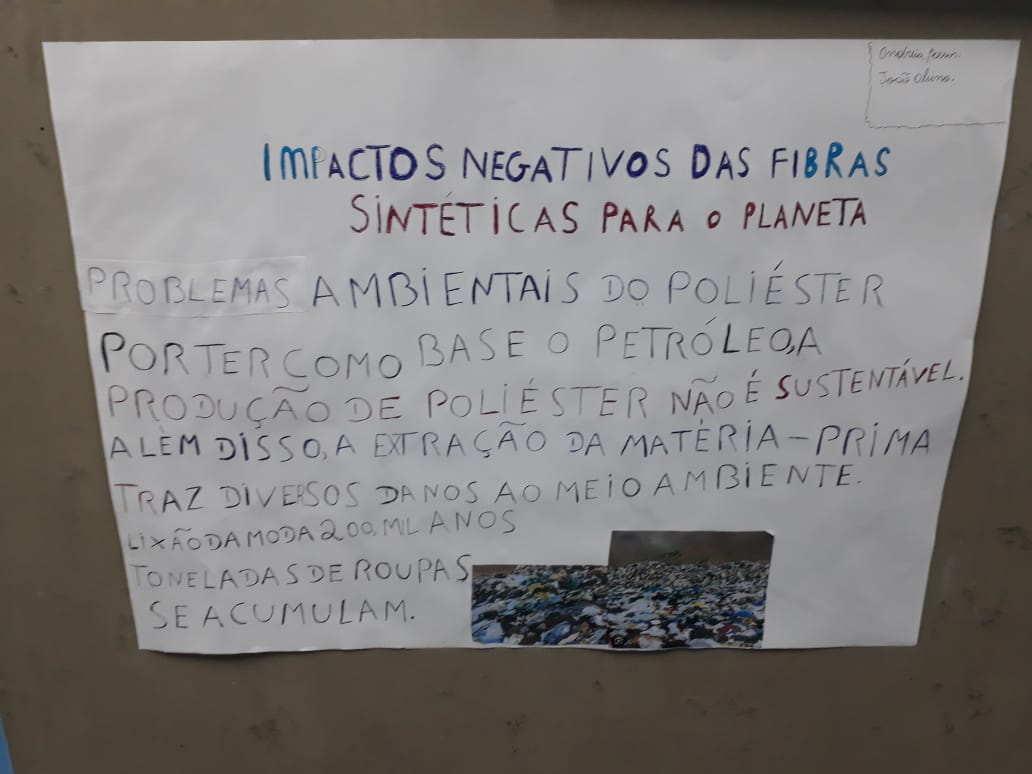 Andreia
João aluno.
IMPACTOS NEGATIVOS DAS FIBRAS
SINTÉTICAS PARA O PLANETA
PROBLEMAS AMBIENTAIS DO POLIÉSTER
POR TER COMO BASE O PETRÓLEO, A
PRODUÇÃO DE POLIÉSTER NÃO É SUSTENTÁVEL.
ALÉM DISSO, A EXTRAÇÃO DA MATÉRIA-PRIMA
TRAZ DIVERSOS DANOS AO MEIO AMBIENTE.
LIXÃO DA MODA 200, MIL ANOS
TONELADAS DE ROUPAS
SE ACUMULAM.